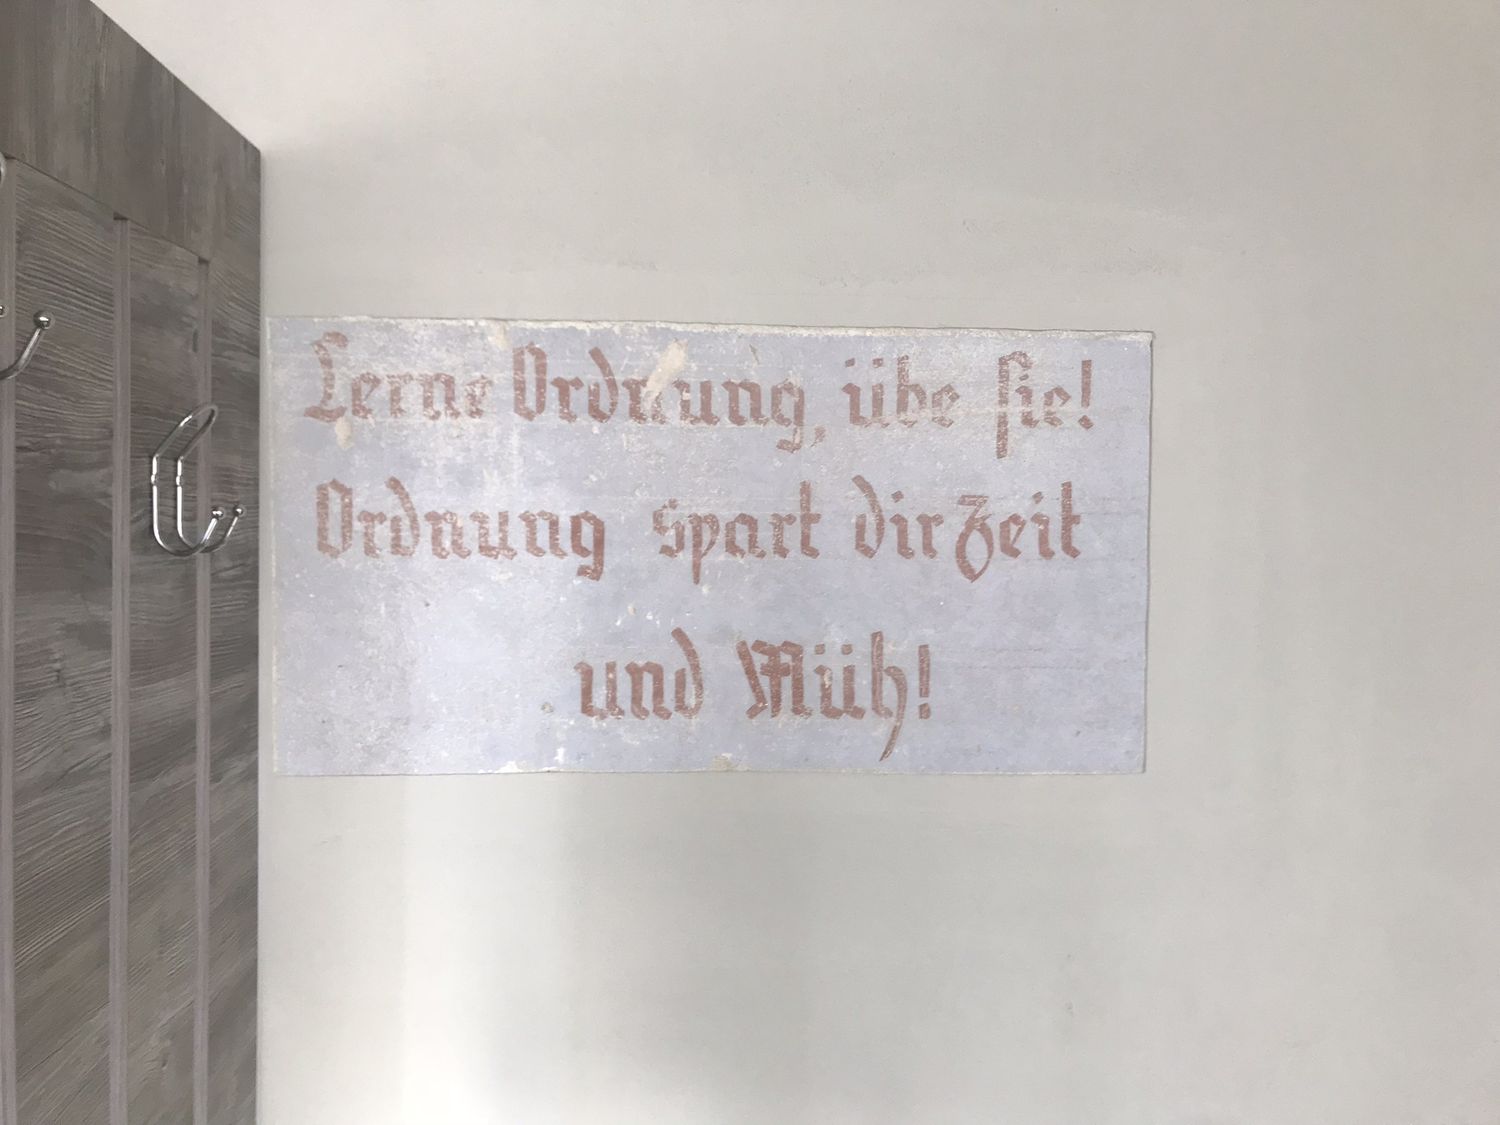 Lerne Ordnung, übe ſie!
Ordnung spart dir Zeit
und Müh!